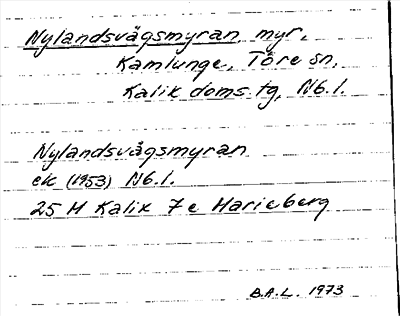 Nylandsvägsmyran, myr,
Kamlunge, Töre sn,
Kalix doms. tg, Nb.l.
Nylandsvägsmyran
ek (1953) Nb.l.
25 M Kalix 7e Marieberg
B.A.L. 1973